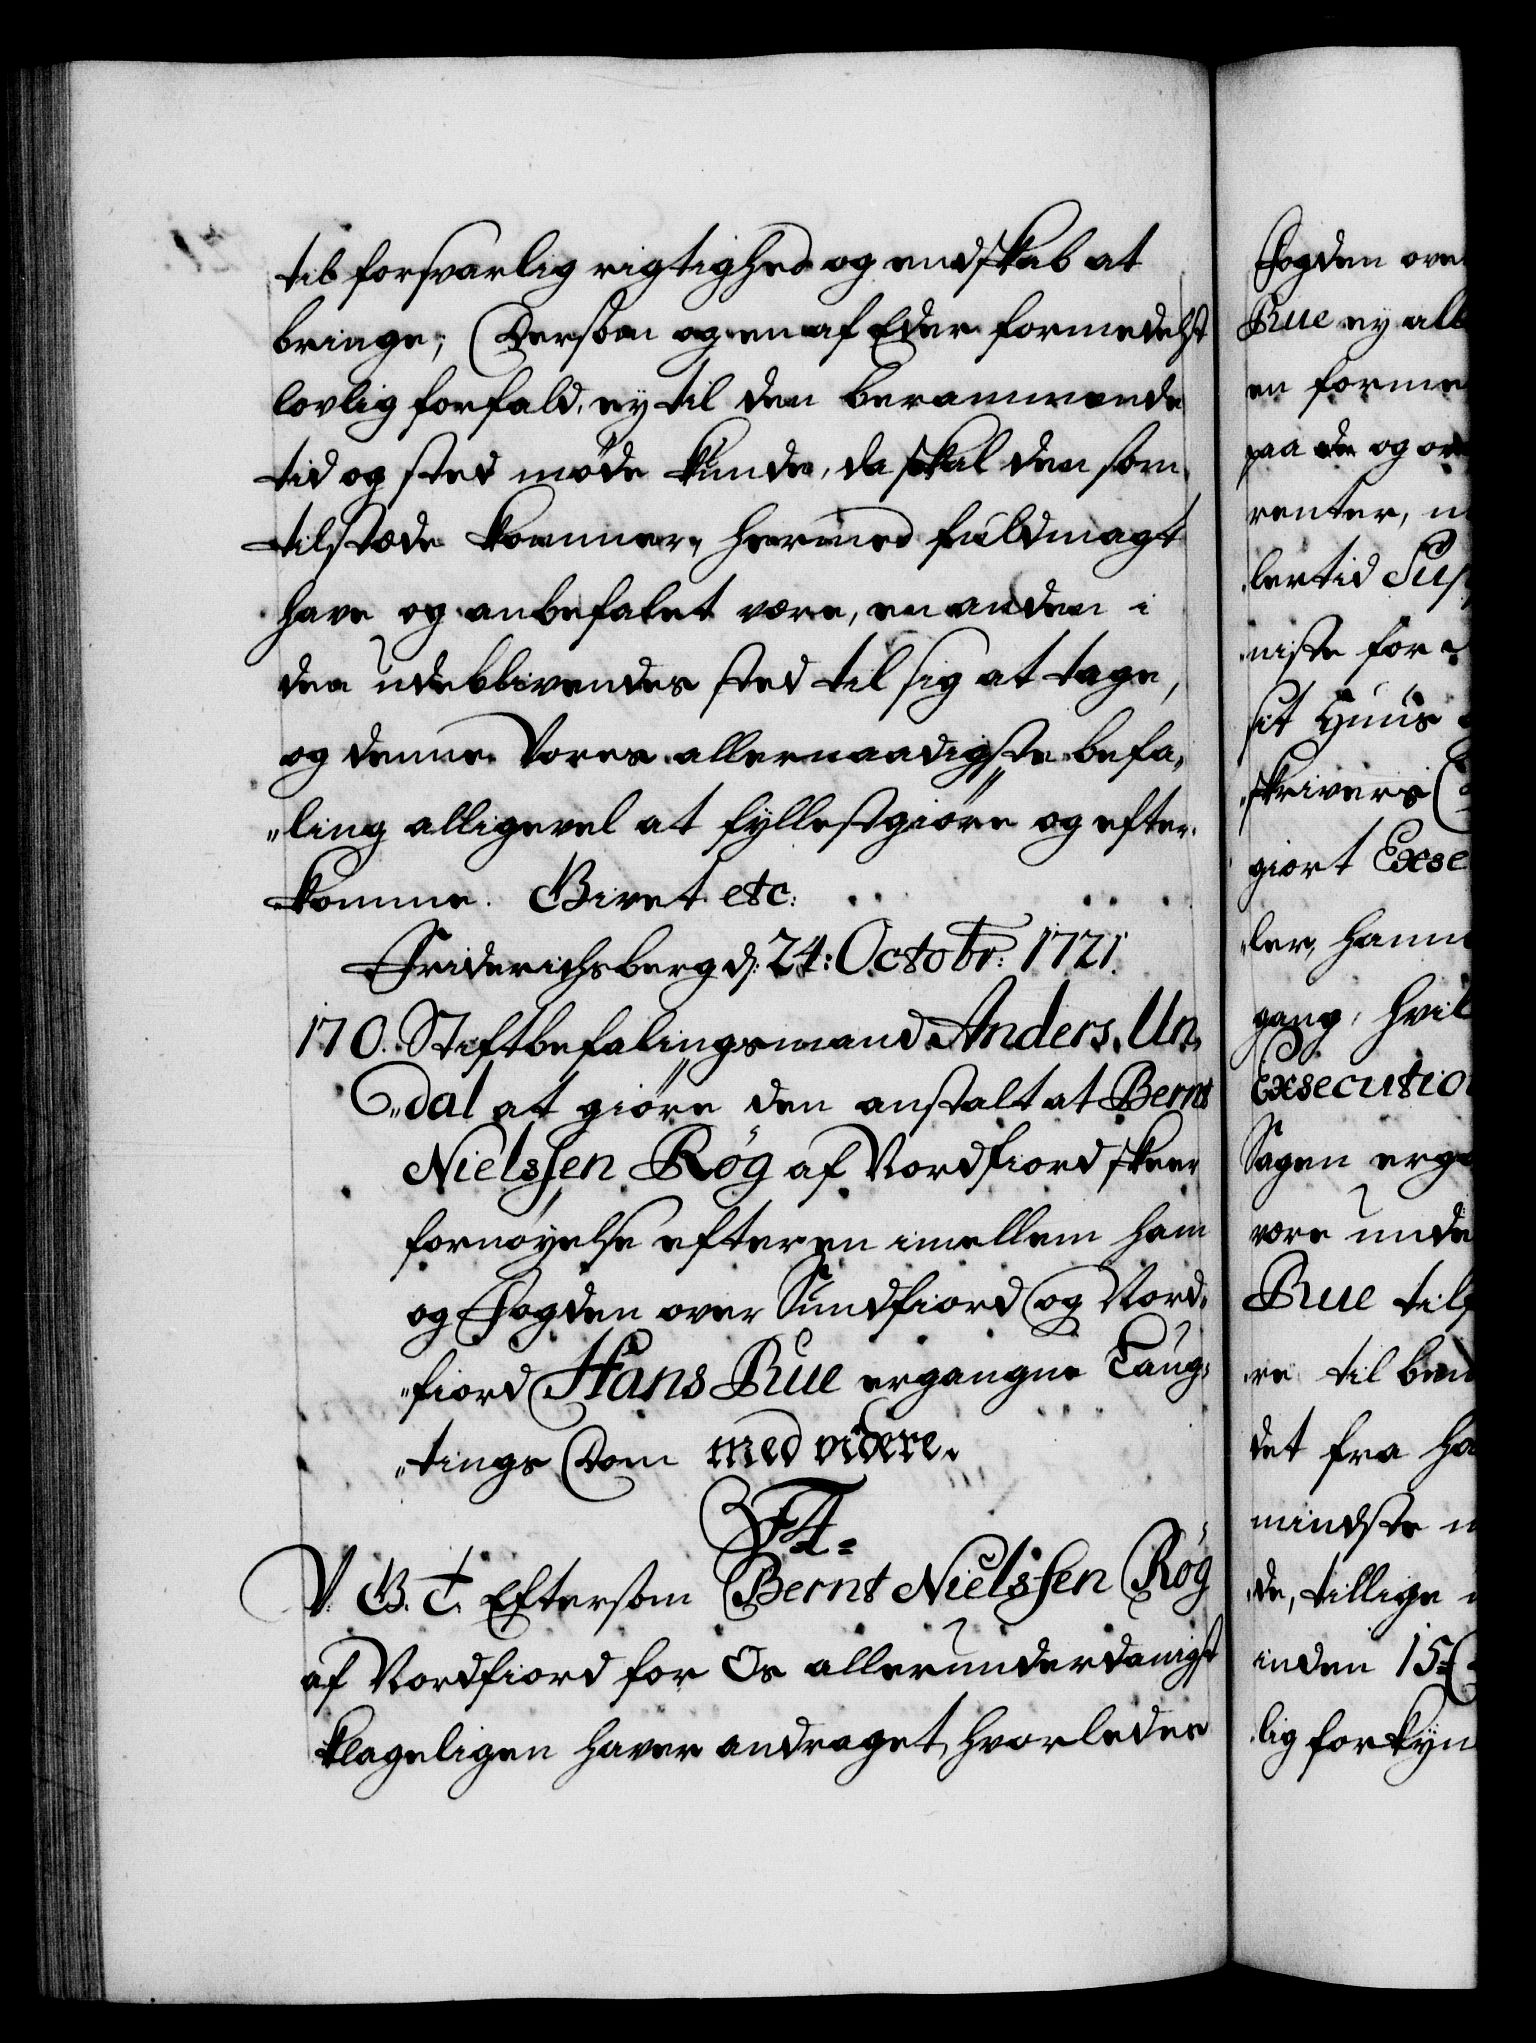 til forsvarlig rigtighed og endskab at
bringe; Dersom og en af Eder formedelst
lovlig forfald, ey til den berammende
tid og sted møde kunde, da skal den som
tilstæde kommer, hermed fuldmagt
have og anbefalet være, en anden i
den udeblivendes sted til sig at tage,
og denne Vores allernaadigste befa,
„ling alligevel at fyllestgiøre og efter„
komme. Givet etc:
Friderichsberg d: 24: Octobr: 1721.
170. Stiftbefalingsmand Anders Un„
„dal at giøre den anstalt at Bernt
Nielssen Røg af Nordfiord skeer
fornøyelse efter en imellem ham
og Fogden over Sundfiord og Nord„
„fiord Hans Rue ergangne Laug„
„tings Dom med videre.
F4.
V. G. T. Eftersom Bernt Nielssen Røg
af Nordfiord for Os allerunderdanigst
klageligen haver andraget, hvorledes
Fogden ove
Rue ey all
en forme
paa de og or
renter, n
lertid Sup
niste for
sit Huus
skrivers
giort Exse
ler, hann
gang, hvil
Exsecutio
Sagen erga
være unde
Rue til
re til be
det fra ha
mindste
de, tillige
inden 15
lig forkyn